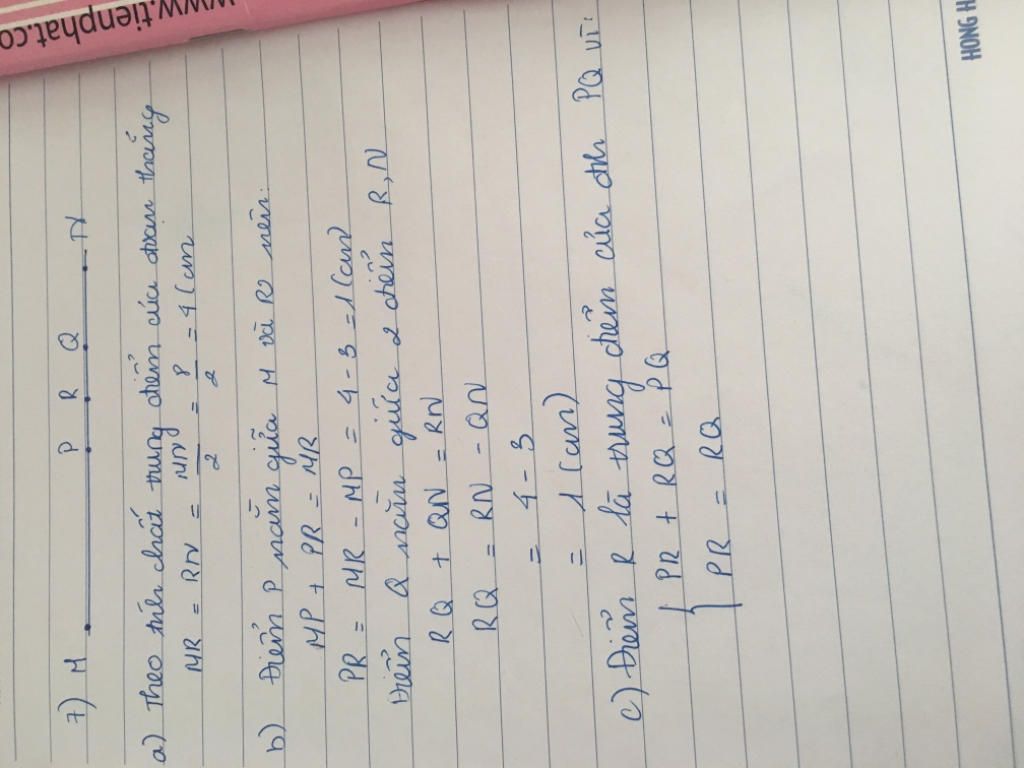 www.tienphat.co
HONG H
7) M P R Q N
a) Theo tính chất trung điểm của đoạn thẳng
MR = RN = MN/2 = 8/2 = 4 (cm
b) Điểm P nằm giữa M và R nên:
MP + PR = MR
PR = MR - MP = 4 - 3 = 1 (cm)
Điểm Q nằm giữa 2 điểm R, N
RQ + QN = RN
RQ = RN - QN
= 4 - 3
= 1 (cm)
c) Điểm R là trung điểm của đth PQ vì:
{ PR + RQ = PQ
PR = RQ